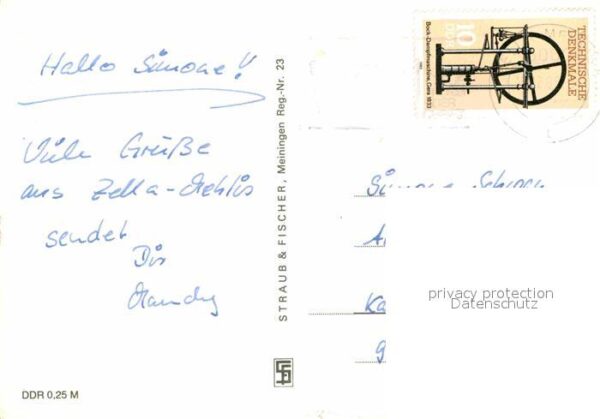 Hallo Simone!
Viele Grüße
aus Zella-Mehlis
sendet
Dir
Mandy
DDR 0,25 M
STRAUB & FISCHER, Meiningen Reg.-Nr. 23
TECHNISCHE
DENKMALE
10
DDR
Bock-Dampfmaschine, Gera 1833
Simone
privacy protection
Datenschutz